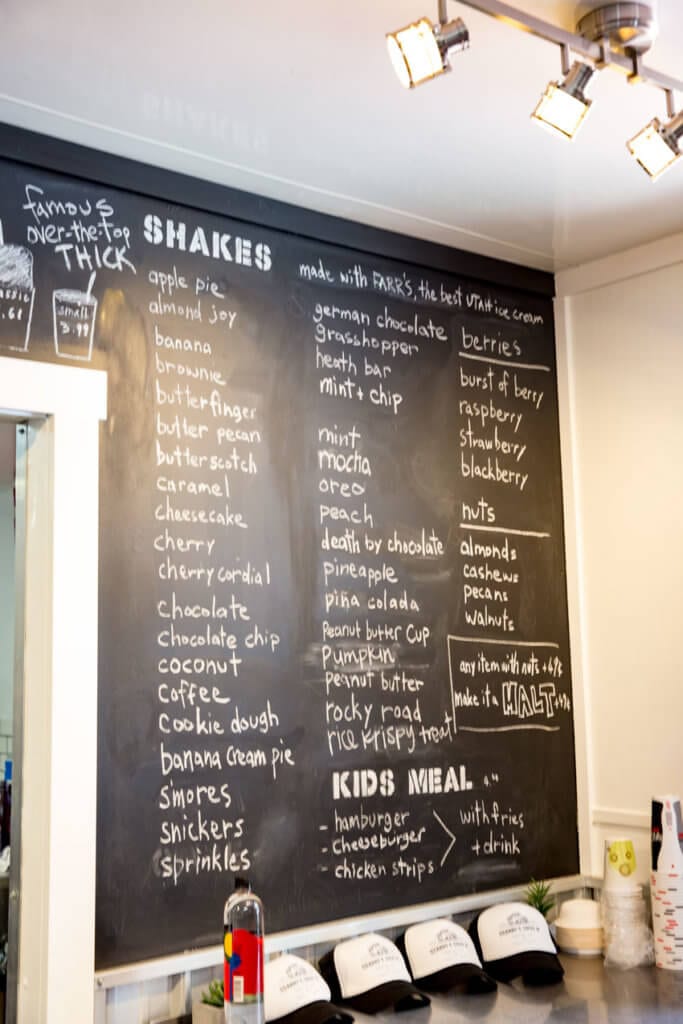 famous
over-the-top
THICK
small
3.99
SHAKES
made with FARR'S, the best UTAH ice cream
apple pie
almond joy
banana
brownie
butterfinger
butter pecan
butterscotch
caramel
cheesecake
cherry
cherry cordial
chocolate
chocolate chip
coconut
coffee
cookie dough
banana cream pie
s'mores
snickers
sprinkles
german chocolate
grasshopper
heath bar
mint + chip
mint
mocha
oreo
peach
death by chocolate
pineapple
piña colada
Peanut butter cup
pumpkin
peanut butter
rocky road
rice krispy treat
berries
burst of berry
raspberry
strawberry
blackberry
nuts
almonds
cashews
pecans
walnuts
any item with nuts +49¢
make it a MALT +49¢
KIDS MEAL
- hamburger
- cheeseburger
- chicken strips
with fries
+ drink